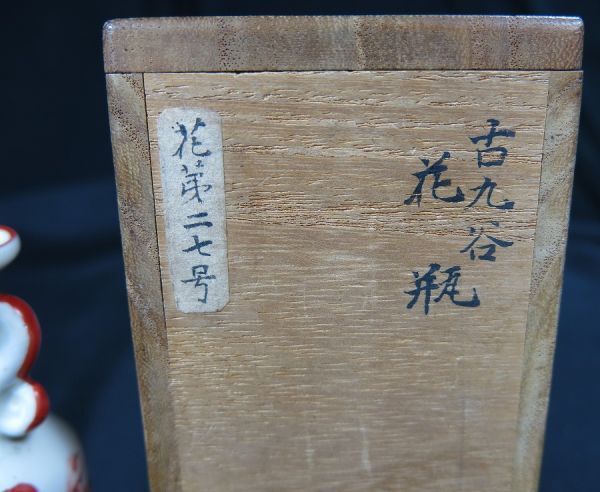 古九谷
花瓶
花第二七号